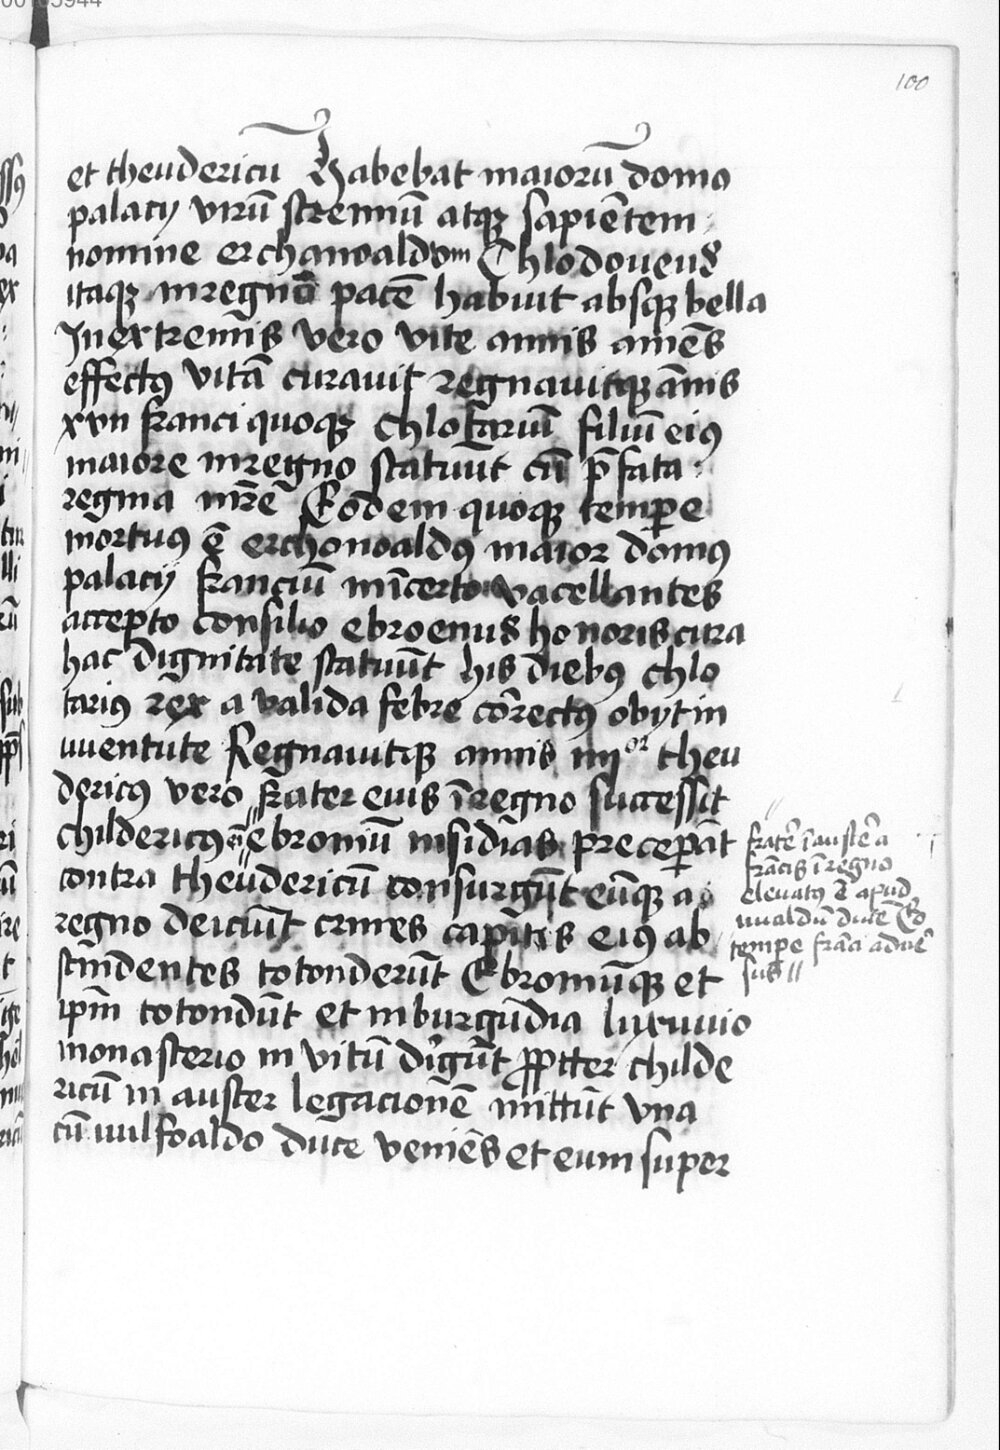 00105944
100
et theudericū Habebat maiorū domo
palacij virū strennuū atqꝫ sapiētem
nomine erchanoaldom Chlodoveus
itaqꝫ in regno pacē habuit absqꝫ bella
In extremis vero vite annis amēs
effectꝯ vitā curavit regnavitqꝫ ānis
xvii franci quoqꝫ Chlotariū filiū eiꝯ
maiore in regno statuūt cū p̄fata
regina mr̄e Eodem quoqꝫ tempe
mortuꝯ ē erchonoaldꝯ maior domꝯ
palacij franciū in īcerto vacellantes
accepto consilio ebroenus honoris cura
hac dignitate statuūt his diebꝯ chlo
tariꝯ rex a valida febre cor̄rectꝯ obijt in
iuuentute Regnavitqꝫ annis iiijor theu
dericꝯ vero frater euis ī regno successit
childericꝯ eī ebroniū insidias preceperāt
contra theudericū consurgūt eūqꝫ a
regno deiciūt crines capitis eiꝯ ab
scindentes totonderūt Ebroniūqꝫ et
ipm̄ totondūt et in burgūdia luxuuio
monasterio in vitū dir̄gūt ꝓpter childe
ricū in auster legacionē mittūt vna
cū uulfoaldo duce veniēs et eum super
fratēr ī austēr a
francis ī regno
elevatꝯ ē apud
uualdū ducē Eo
tempe frāci aduer̄
sus //